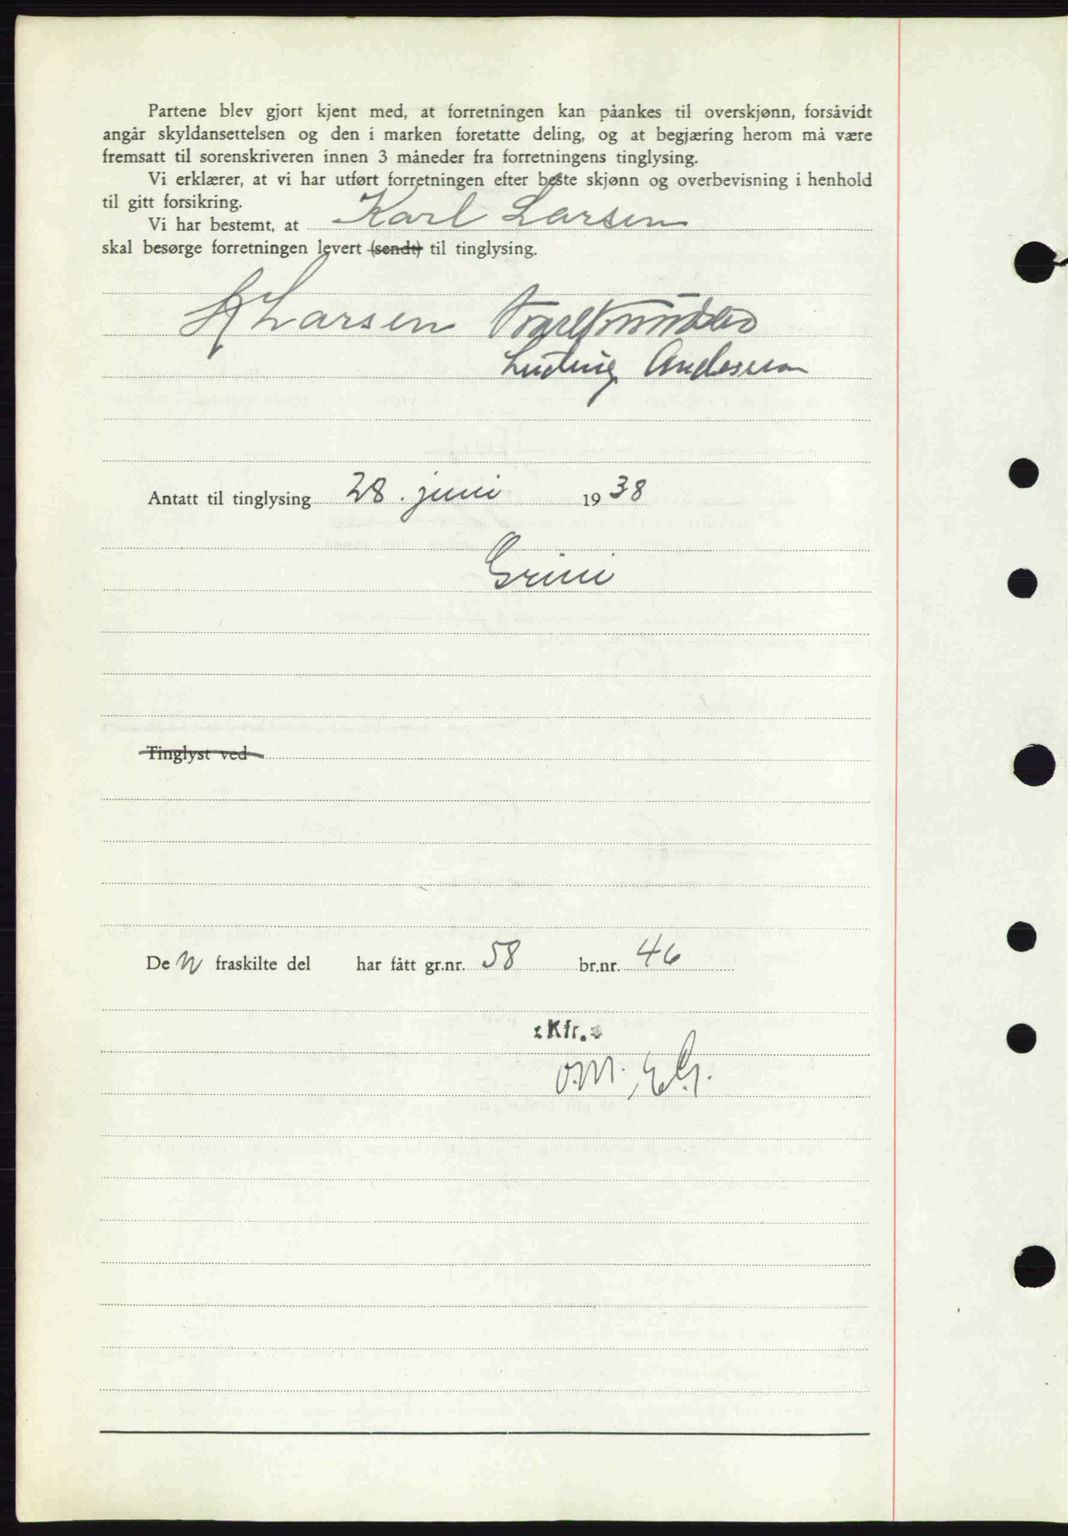 Partene blev gjort kjent med, at forretningen kan påankes til overskjønn, forsåvidt
angår skyldansettelsen og den i marken foretatte deling, og at begjæring herom må være
fremsatt til sorenskriveren innen 3 måneder fra forretningens tinglysing.
Vi erklærer, at vi har utført forretningen efter beste skjønn og overbevisning i henhold
til gitt forsikring.
Vi har bestemt, at Karl Larsen
skal besørge forretningen levert (sendt) til tinglysing.
K Larsen
Ludvig Andersen
Antatt til tinglysing 28. juni 1938
Grini
Tinglyst ved
De n fraskilte del har fått gr.nr. 58 br.nr. 46
:Kfr.:
O.M. E.G.